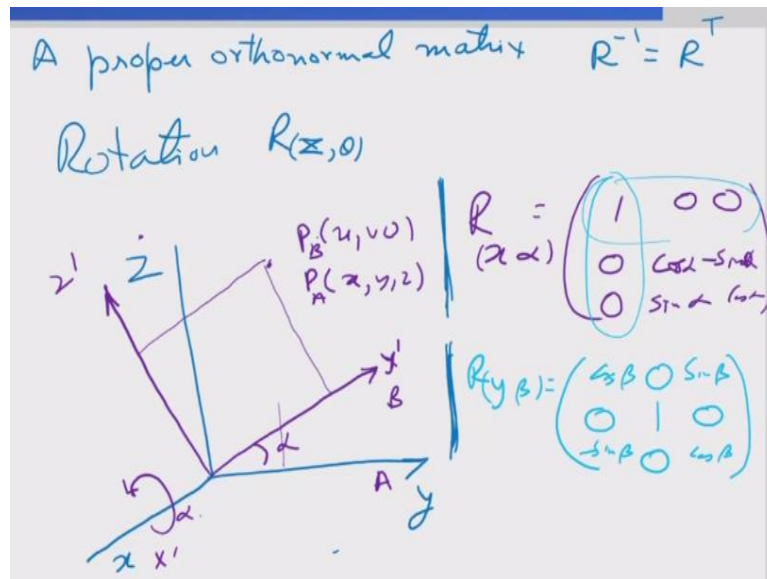 A proper orthonormal matrix R⁻¹ = Rᵀ
Rotation R(z,θ)
z' Z
P_B(u, v 0)
P_A(x, y, z)
y'
B
α
A
y
α
x x'
R (x α) = ( 1 0 0
0 cosα -sinα
0 sinα cosα )
R(y β) = ( cosβ 0 sinβ
0 1 0
-sinβ 0 cosβ )